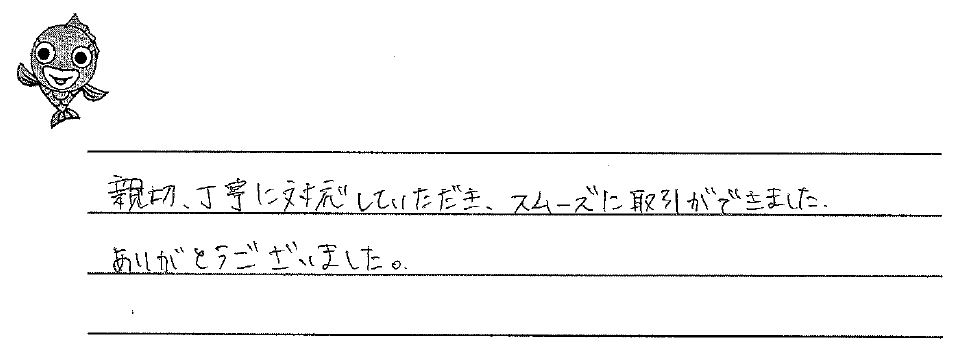 親切、丁寧に対応していただき、スムーズに取引ができました.
ありがとうございました。